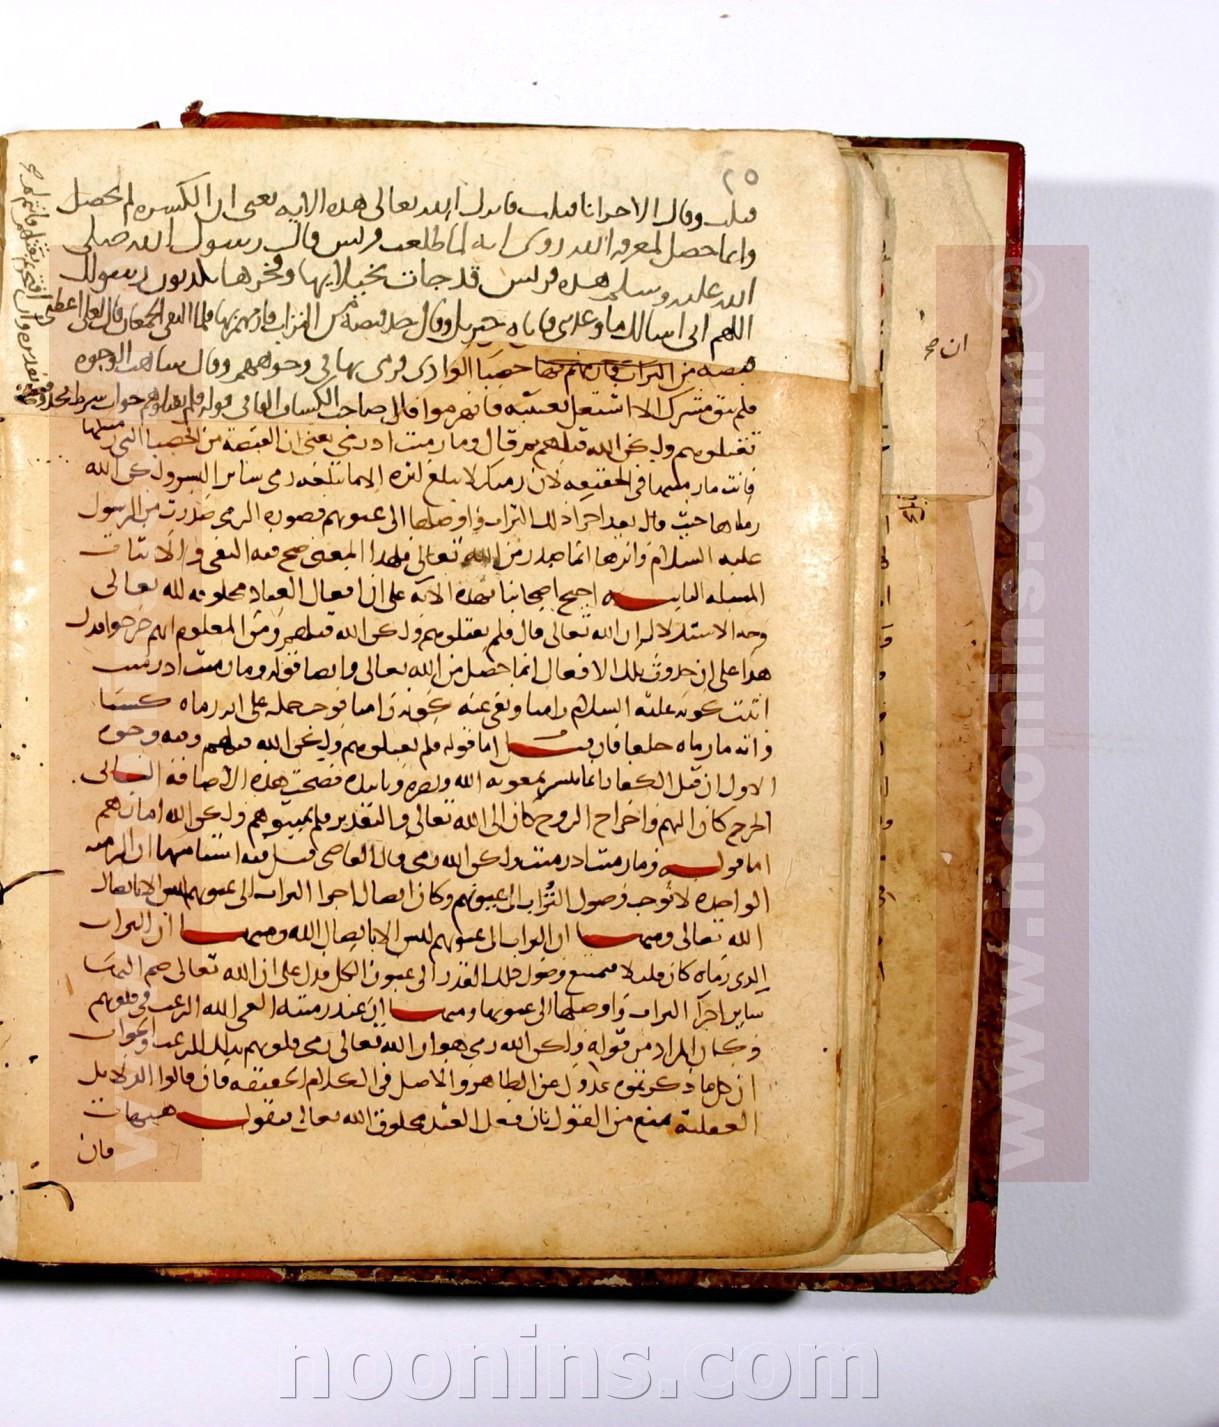 ٢٥
قتلت وقال الاخر انا قتلت فانزل الله تعالى هذه الاية يعنى ان الكسره لم تحصل
وانما حصل لمعرفه الله روى انه لما طلعت قريش قال رسول الله صلى
الله عليه وسلم هذه قريش قد جات بخيلايها وفخرها يكذبون رسولك
اللهم انى اسالك ما وعدتنى فاتاه جبريل وقال خذ قبضة من التراب فارمهم بها فلما التقى الجمعان قال لعلى اعطنى
قبضه من التراب حصبا الوادى فرمى بها فى وجوههم وقال شاهت الوجوه
فلم يبق مشرك الا اشتغل بعينيه فانهزموا قال صاحب الكشاف الفا فى قوله فلم تقتلوهم جواب شرط محذوف
تقديره وان افتخرتم بقتلهم فانتم لم
تقتلوهم ولكن الله قتلهم ثم قال وما رميت اذ رميت يعنى ان القبضة من الحصبا التى رميتها
فانت ما رميتها فى الحقيقه لان رميك لا يبلغ اثره الا ما يبلغه رمى ساير البشر ولكن الله
رماها حيث قال بعد اجزا ذلك التراب واوصلها الى عيونهم فصورة الرمى صدرت من الرسول
عليه السلام واثرها انما صدر من الله تعالى فلهذا المعنى صح فيه النفى والاثبات
المسله الثانيه احتج اصحابنا بهذه الاية على ان افعال العباد مخلوقه لله تعالى
وجه الاستدلال ان الله تعالى قال فلم تقتلوهم ولكن الله قتلهم ومن المعلوم انهم جرحوا فدل
هذا على ان حدوث تلك الافعال انما حصل من الله تعالى وايضا فقوله وما رميت اذ رميت
اثبت كونه عليه السلام راميا ونفى عنه كونه راميا فوجب حمله على انه رماه كسبا
وانه ما رماه خلقا فان قيل اما قوله فلم تقتلوهم ولكن الله قتلهم وفيه وجوه
الاول ان قتل الكفار انما تيسر بمعونه الله ونصره وتاييده فصحت هذه الاضافة الثانى
الجرح كان اليهم واخراج الروح كان الى الله تعالى والتقدير فلم تميتوهم ولكن الله اماتهم
اما قوله وما رميت اذ رميت ولكن الله رمى قال القاضى قيل فيه اشيا منها ان الرميه
الواحده لا توجب وصول التراب الى عيونهم وكان ايصال اجزا التراب الى عيونهم ليس الا بايصال
الله تعالى ومنها ان التراب الى عيونهم ليس الا بايصال الله ومنها ان التراب
الذى رماه كان قليلا فيمتنع وصول ذلك القدر الى عيون الكل فدل على ان الله تعالى ضم اليها
ساير اجزا التراب واوصلها الى عيونها ومنها ان عند رميته القى الله الرعب فى قلوبهم
وكان المراد من قوله ولكن الله رمى هو ان الله تعالى رمى قلوبهم بذلك الرعب والجواب
ان كل ما ذكرتموه عدول عن الظاهر والاصل فى الكلام الحقيقه فان قالوا الدلايل
العقلية تمنع من القول بان فعل العبد مخلوق الله تعالى فنقول هيهات
فان
ان صح
www.noonins.com
noonins.com